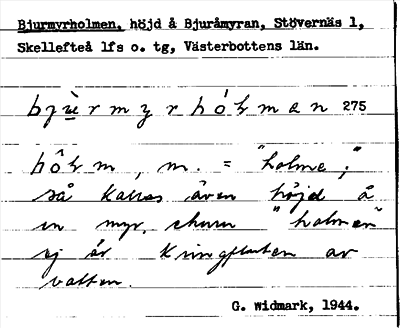 Bjurmyrholmen, höjd å Bjuråmyran, Stövernäs 1,
Skellefteå lfs o. tg, Västerbottens län.
bjùrmyrhólman 275
hôlm, m. = "holme";
så kallas även höjd å
en myr, churu "holmen"
ej är kringfluten av
vatten.
G. Widmark, 1944.